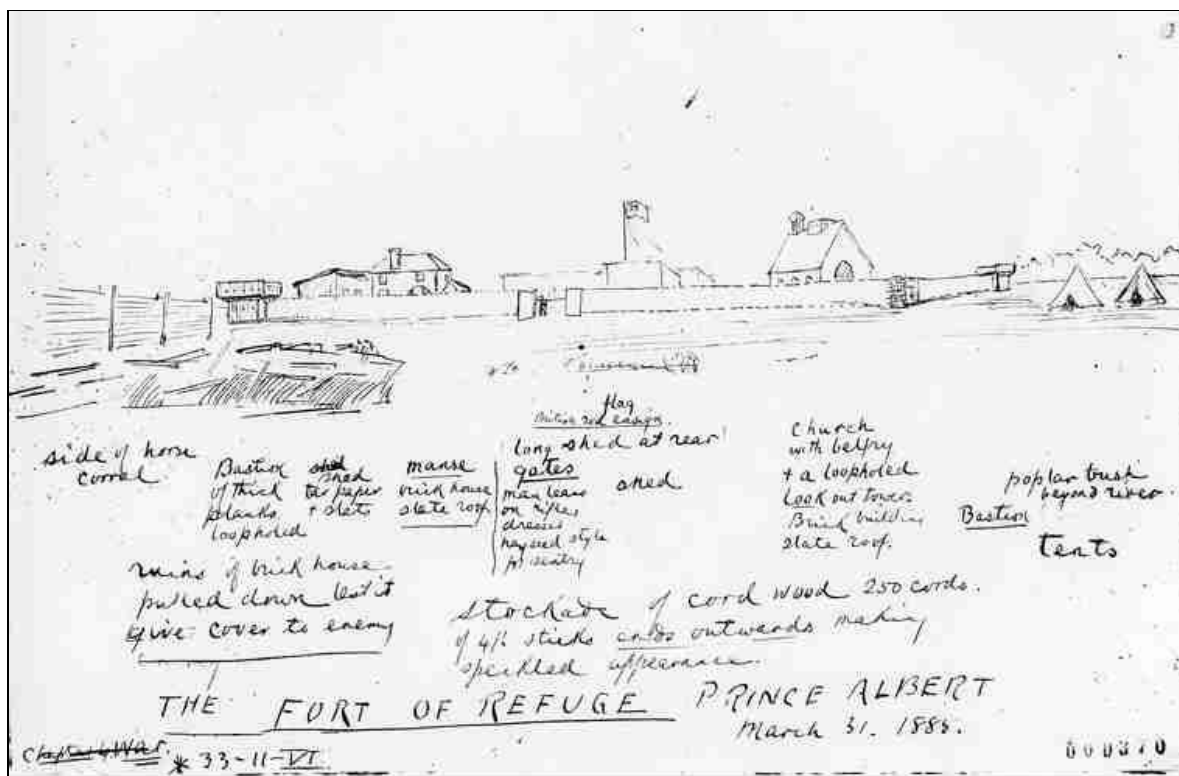 flag
British red ensign.
long shed at rear
side of horse
corral.
Bastion
of thick
planks
loopholed
shed
tar paper
+ slats
manse
brick house
slate roof
gates
man leans
on rifle
dresses
hayseed style
for sentry
shed
Church
with belfry
+ a loopholed
Look out tower
Brick building
slate roof.
Bastion
poplar bush
beyond river.
tents
ruins of brick house
pulled down lest it
give cover to enemy
Stockade of cord wood 250 cords.
of 4ft sticks ends outwards making
speckled appearance.
THE FORT OF REFUGE PRINCE ALBERT
March 31. 1885.
* 33-11-VI
000370